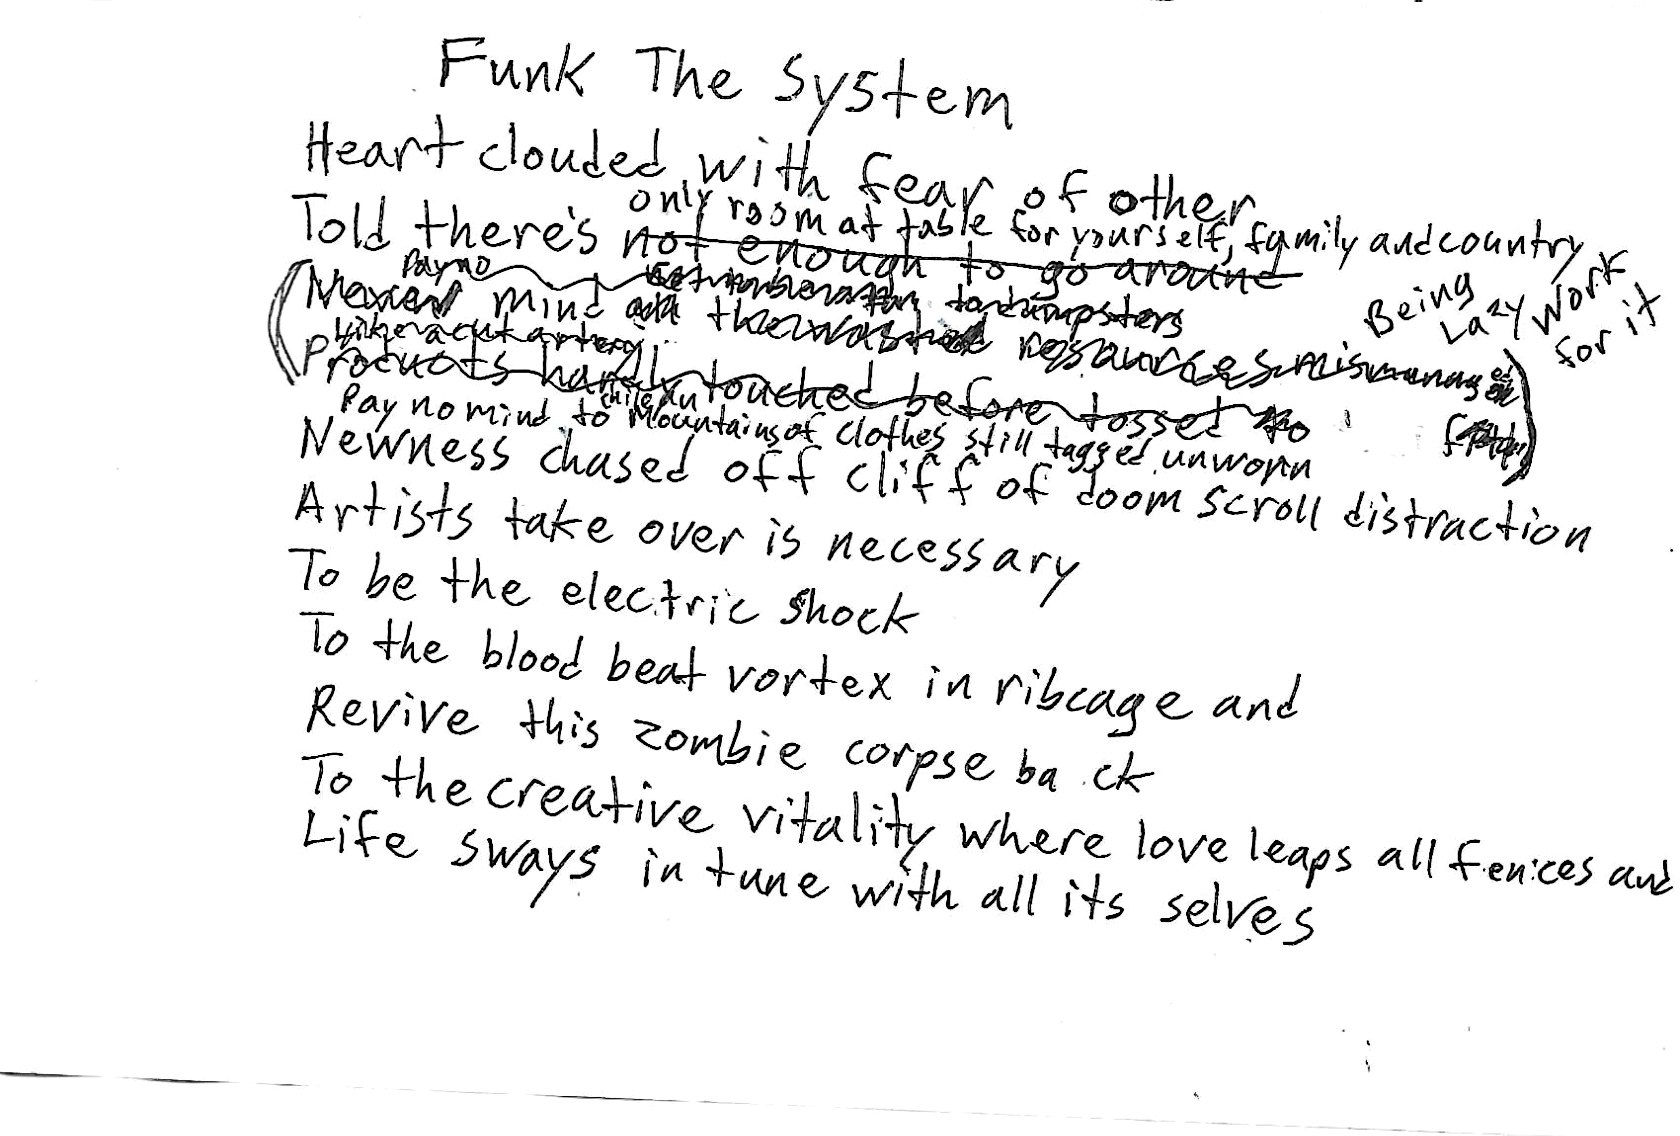 Funk The System
Heart clouded with fear of other
only room at table for yourself, family and country
Told there's not enough to go around
Pay no to dumpsters
mind the resources mismanaged
Being Lazy Work for it
Like a cut artery
Products hardly touched before tossed to
Pay no mind to Chilean Mountains of clothes still tagged unworn
Newness chased off cliff of doom scroll distraction
Artists take over is necessary
To be the electric shock
To the blood beat vortex in ribcage and
Revive this zombie corpse back
To the creative vitality where love leaps all fences and
Life sways in tune with all its selves